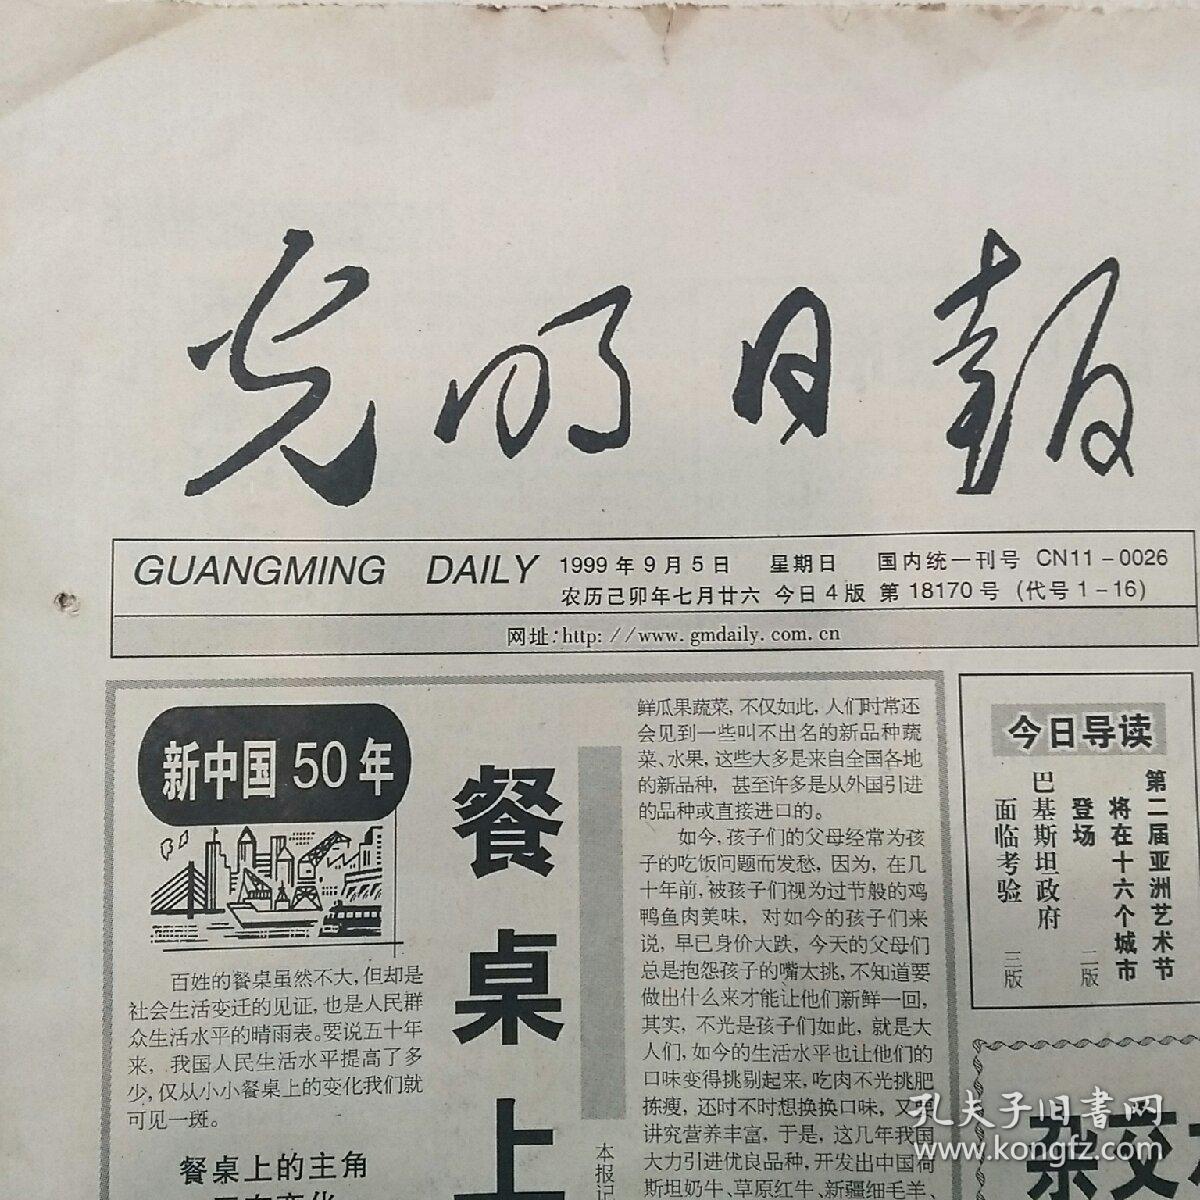 光明日報
GUANGMING DAILY
1999年9月5日 星期日 国内统一刊号 CN11-0026
农历己卯年七月廿六 今日4版 第18170号 (代号1-16)
网址:http://www.gmdaily.com.cn
新中国50年
百姓的餐桌虽然不大,但却是
社会生活变迁的见证,也是人民群
众生活水平的晴雨表。要说五十年
来,我国人民生活水平提高了多
少,仅从小小餐桌上的变化我们就
可见一斑。
餐桌上的主角
餐桌上
本报记
鲜瓜果蔬菜,不仅如此,人们时常还
会见到一些叫不出名的新品种蔬
菜、水果,这些大多是来自全国各地
的新品种,甚至许多是从外国引进
的品种或直接进口的。
如今,孩子们的父母经常为孩
子的吃饭问题而发愁,因为,在几
十年前,被孩子们视为过节般的鸡
鸭鱼肉美味,对如今的孩子们来
说,早已身价大跌,今天的父母们
总是抱怨孩子的嘴太挑,不知道要
做出什么来才能让他们新鲜一回,
其实,不光是孩子们如此,就是大
人们,如今的生活水平也让他们的
口味变得挑剔起来,吃肉不光挑肥
拣瘦,还时不时想换换口味,又要
讲究营养丰富,于是,这几年我国
大力引进优良品种,开发出中国荷
斯坦奶牛、草原红牛、新疆细毛羊、
今日导读
第二届亚洲艺术节
将在十六个城市
登场 二版
巴基斯坦政府
面临考验 三版
杂交
孔夫子旧书网
www.kongfz.com